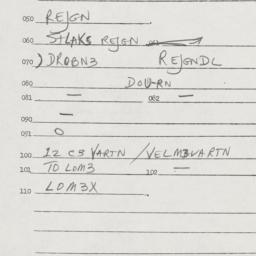 050 REJGN
060 STLAKS REJGN
070 ) DROBN3 REJGNDL
080 DOWRN
081 — 082 —
090 —
091 0
100 12 CS VARTN / VELM3VARTN
101 TO LOM3 102 —
110 LOM3X